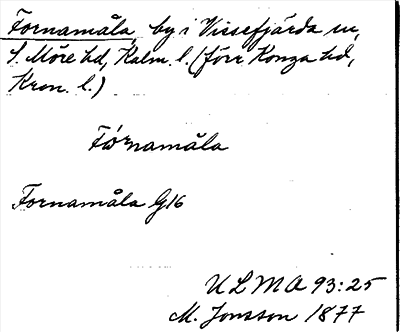 Fornamåla by i Vissefjärda sn,
S. Möre hd, Kalm. l. (förr Konga hd,
Kron. l.)
Fórnamåla
Fornamåla G16
ULMA 93:25
M. Jonsson 1877